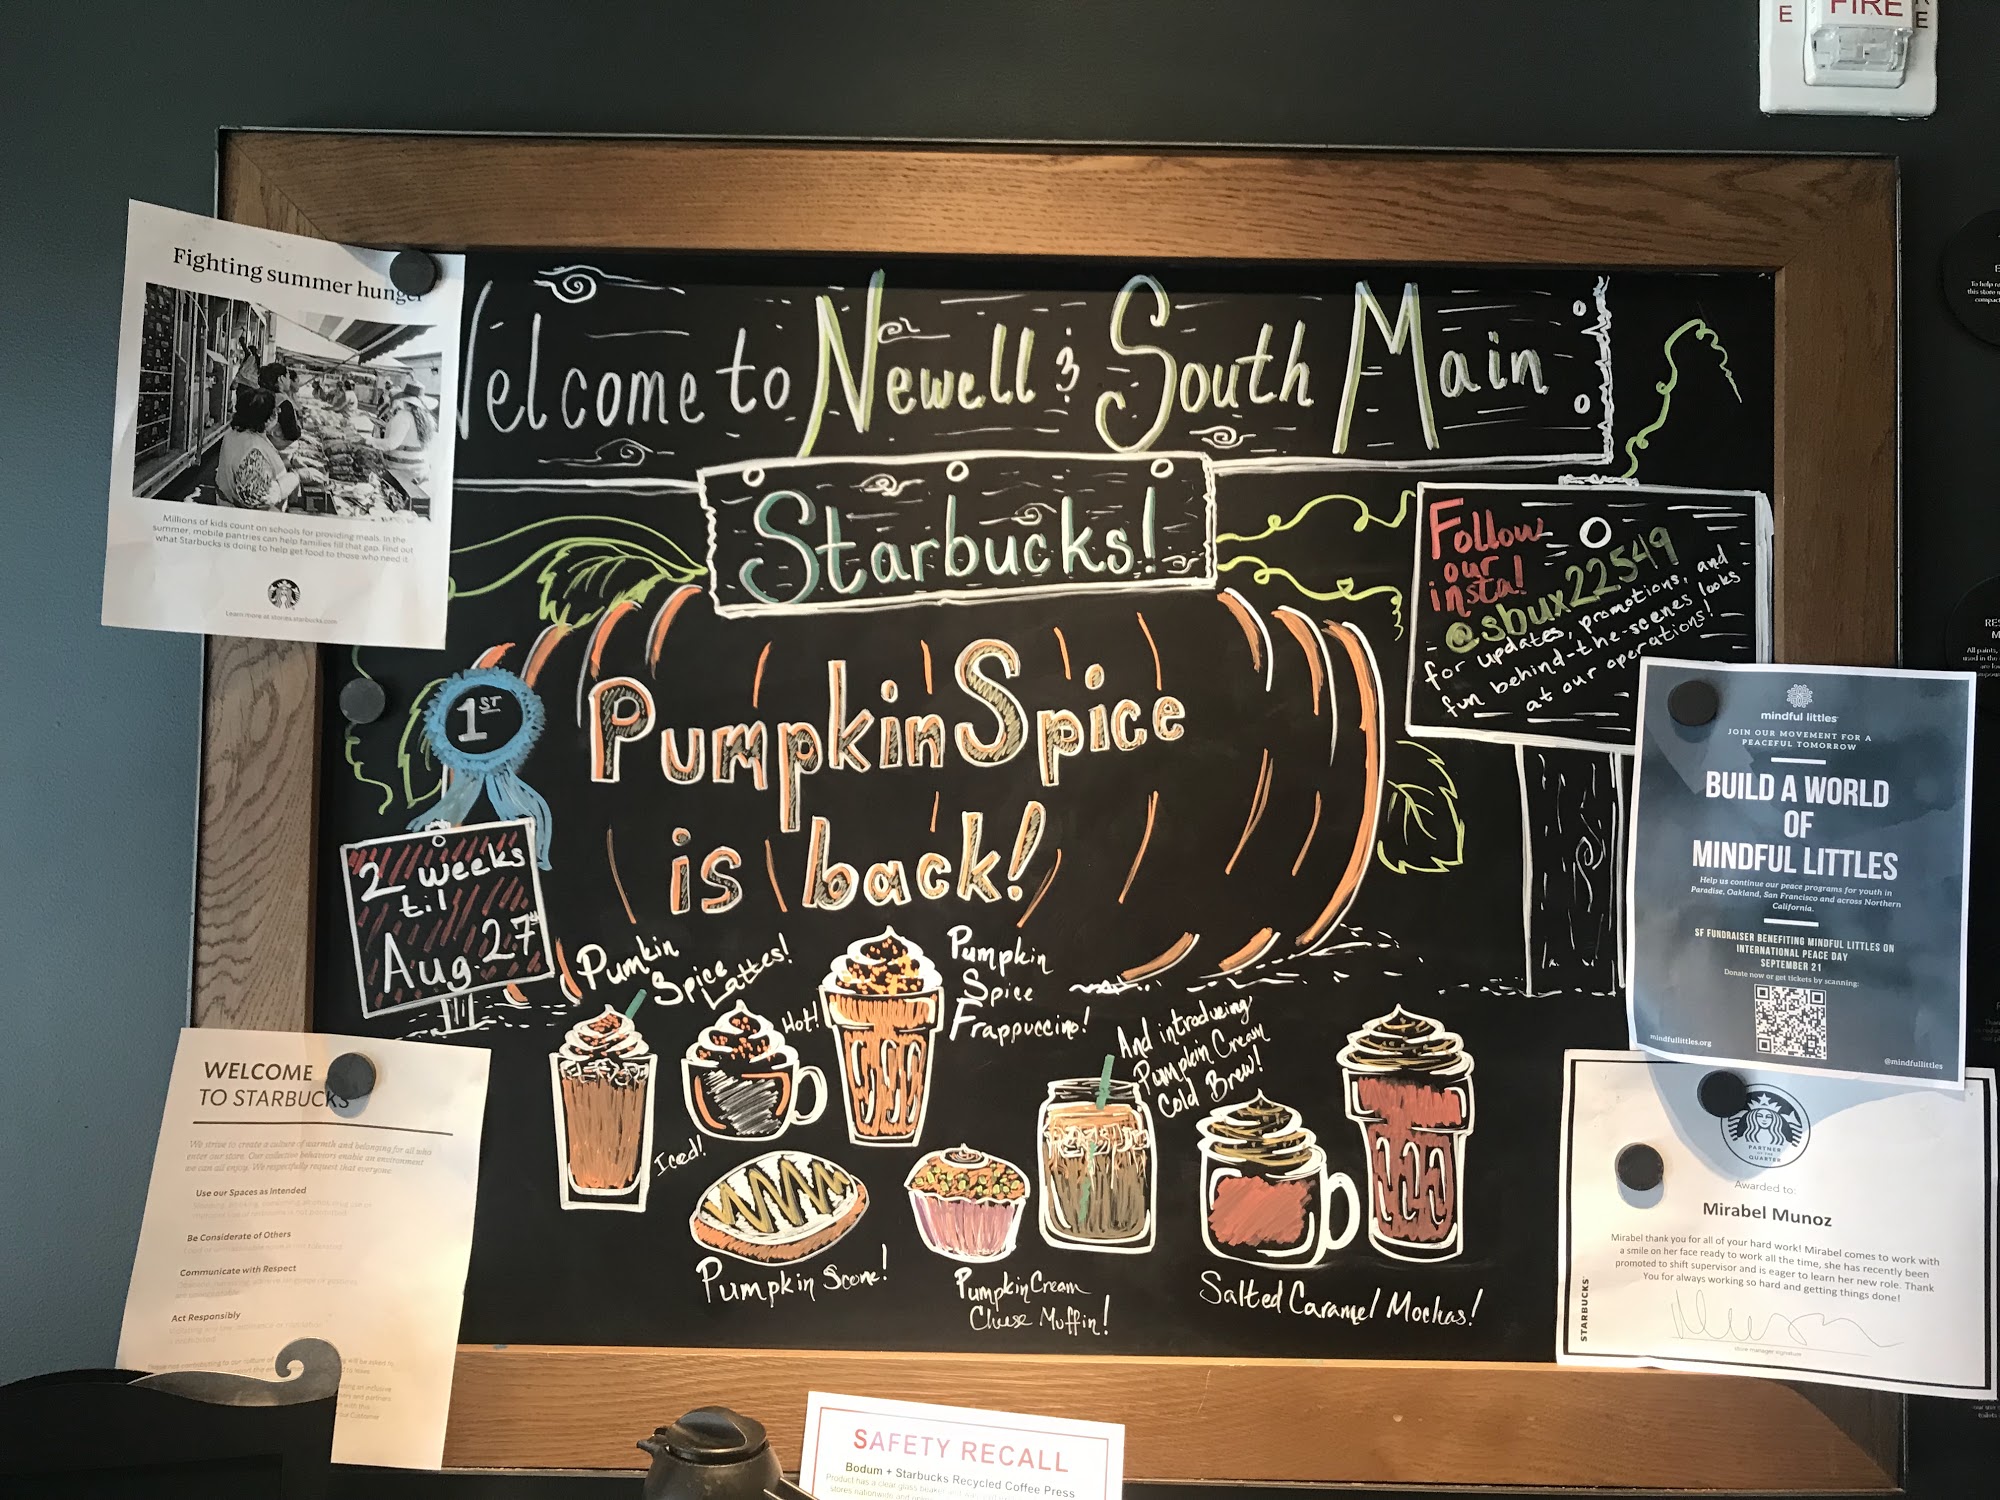 FIRE
E
E
Fighting summer hunger
Millions of kids count on schools for providing meals. In the
summer, mobile pantries can help families fill that gap. Find out
what Starbucks is doing to help get food to those who need it.
Learn more at stories.starbucks.com
Welcome to Newell & South Main
Starbucks!
Follow
our
insta!
@sbux22549
for updates, promotions, and
fun behind-the-scenes looks
at our operations!
1ST
Pumpkin Spice
is back!
2 weeks
til
Aug 27th
Pumkin
Spice
Lattes!
Hot!
Iced!
Pumpkin
Spice
Frappuccino!
And introducing
Pumpkin Cream
Cold Brew!
Pumpkin Scone!
Pumpkin Cream
Cheese Muffin!
Salted Caramel Mochas!
mindful littles
JOIN OUR MOVEMENT FOR A
PEACEFUL TOMORROW
BUILD A WORLD
OF
MINDFUL LITTLES
Help us continue our peace programs for youth in
Paradise, Oakland, San Francisco and across Northern
California.
SF FUNDRAISER BENEFITING MINDFUL LITTLES ON
INTERNATIONAL PEACE DAY
SEPTEMBER 21
Donate now or get tickets by scanning:
mindfullittles.org
@mindfullittles
PARTNER
OF THE
QUARTER
Awarded to:
Mirabel Munoz
Mirabel thank you for all of your hard work! Mirabel comes to work with
a smile on her face ready to work all the time, she has recently been
promoted to shift supervisor and is eager to learn her new role. Thank
You for always working so hard and getting things done!
store manager signature
STARBUCKS
WELCOME
TO STARBUCKS
We strive to create a culture of warmth and belonging for all who
enter our store. Our collective behaviors enable an environment
we can all enjoy. We respectfully request that everyone:
Use our Spaces as Intended
Be Considerate of Others
Communicate with Respect
Act Responsibly
SAFETY RECALL
Bodum + Starbucks Recycled Coffee Press
Product has a clear glass beaker
stores nationwide and